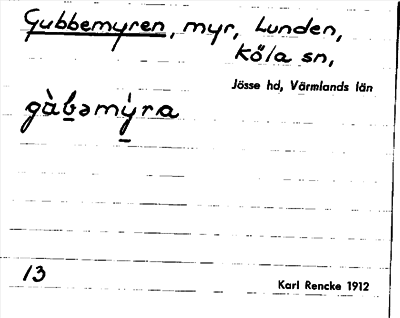 Gubbemyren, myr, Lunden,
Köla sn,
Jösse hd, Värmlands län
gàbəmýra
13
Karl Rencke 1912